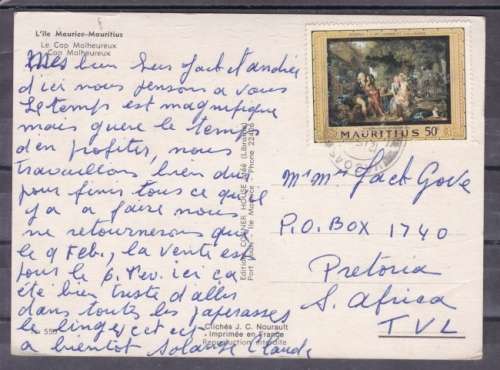 L'Ile Maurice-Mauritius
Le Cap Malheureux
Cap Malheureux
Mes bien chers Jack et andrée
d'ici nous pensons a vous
le temps est magnifique
mais guere le temps
d'en profiter, nous
travaillons bien dur
pour finir tous ce qu'il
y a a faire nous
ne retournerons que
le 9 Fev., la vente est
pour le 6 Fev. ici ca
été bien triste d'aller
dans toutes les paperasses
le linge, etc etc
a bientot Solange Claude
Editions CORNER HOUSE Ltée (Librairie)
Port Louis - Ile Maurice - Phone
Clichés J. C. Nourault
- Imprimée en France -
Reproduction interdite
MAURITIUS 50c
Mr Mme Jack Gove
P.O. BOX 1740
Pretoria
S. Africa
TVL